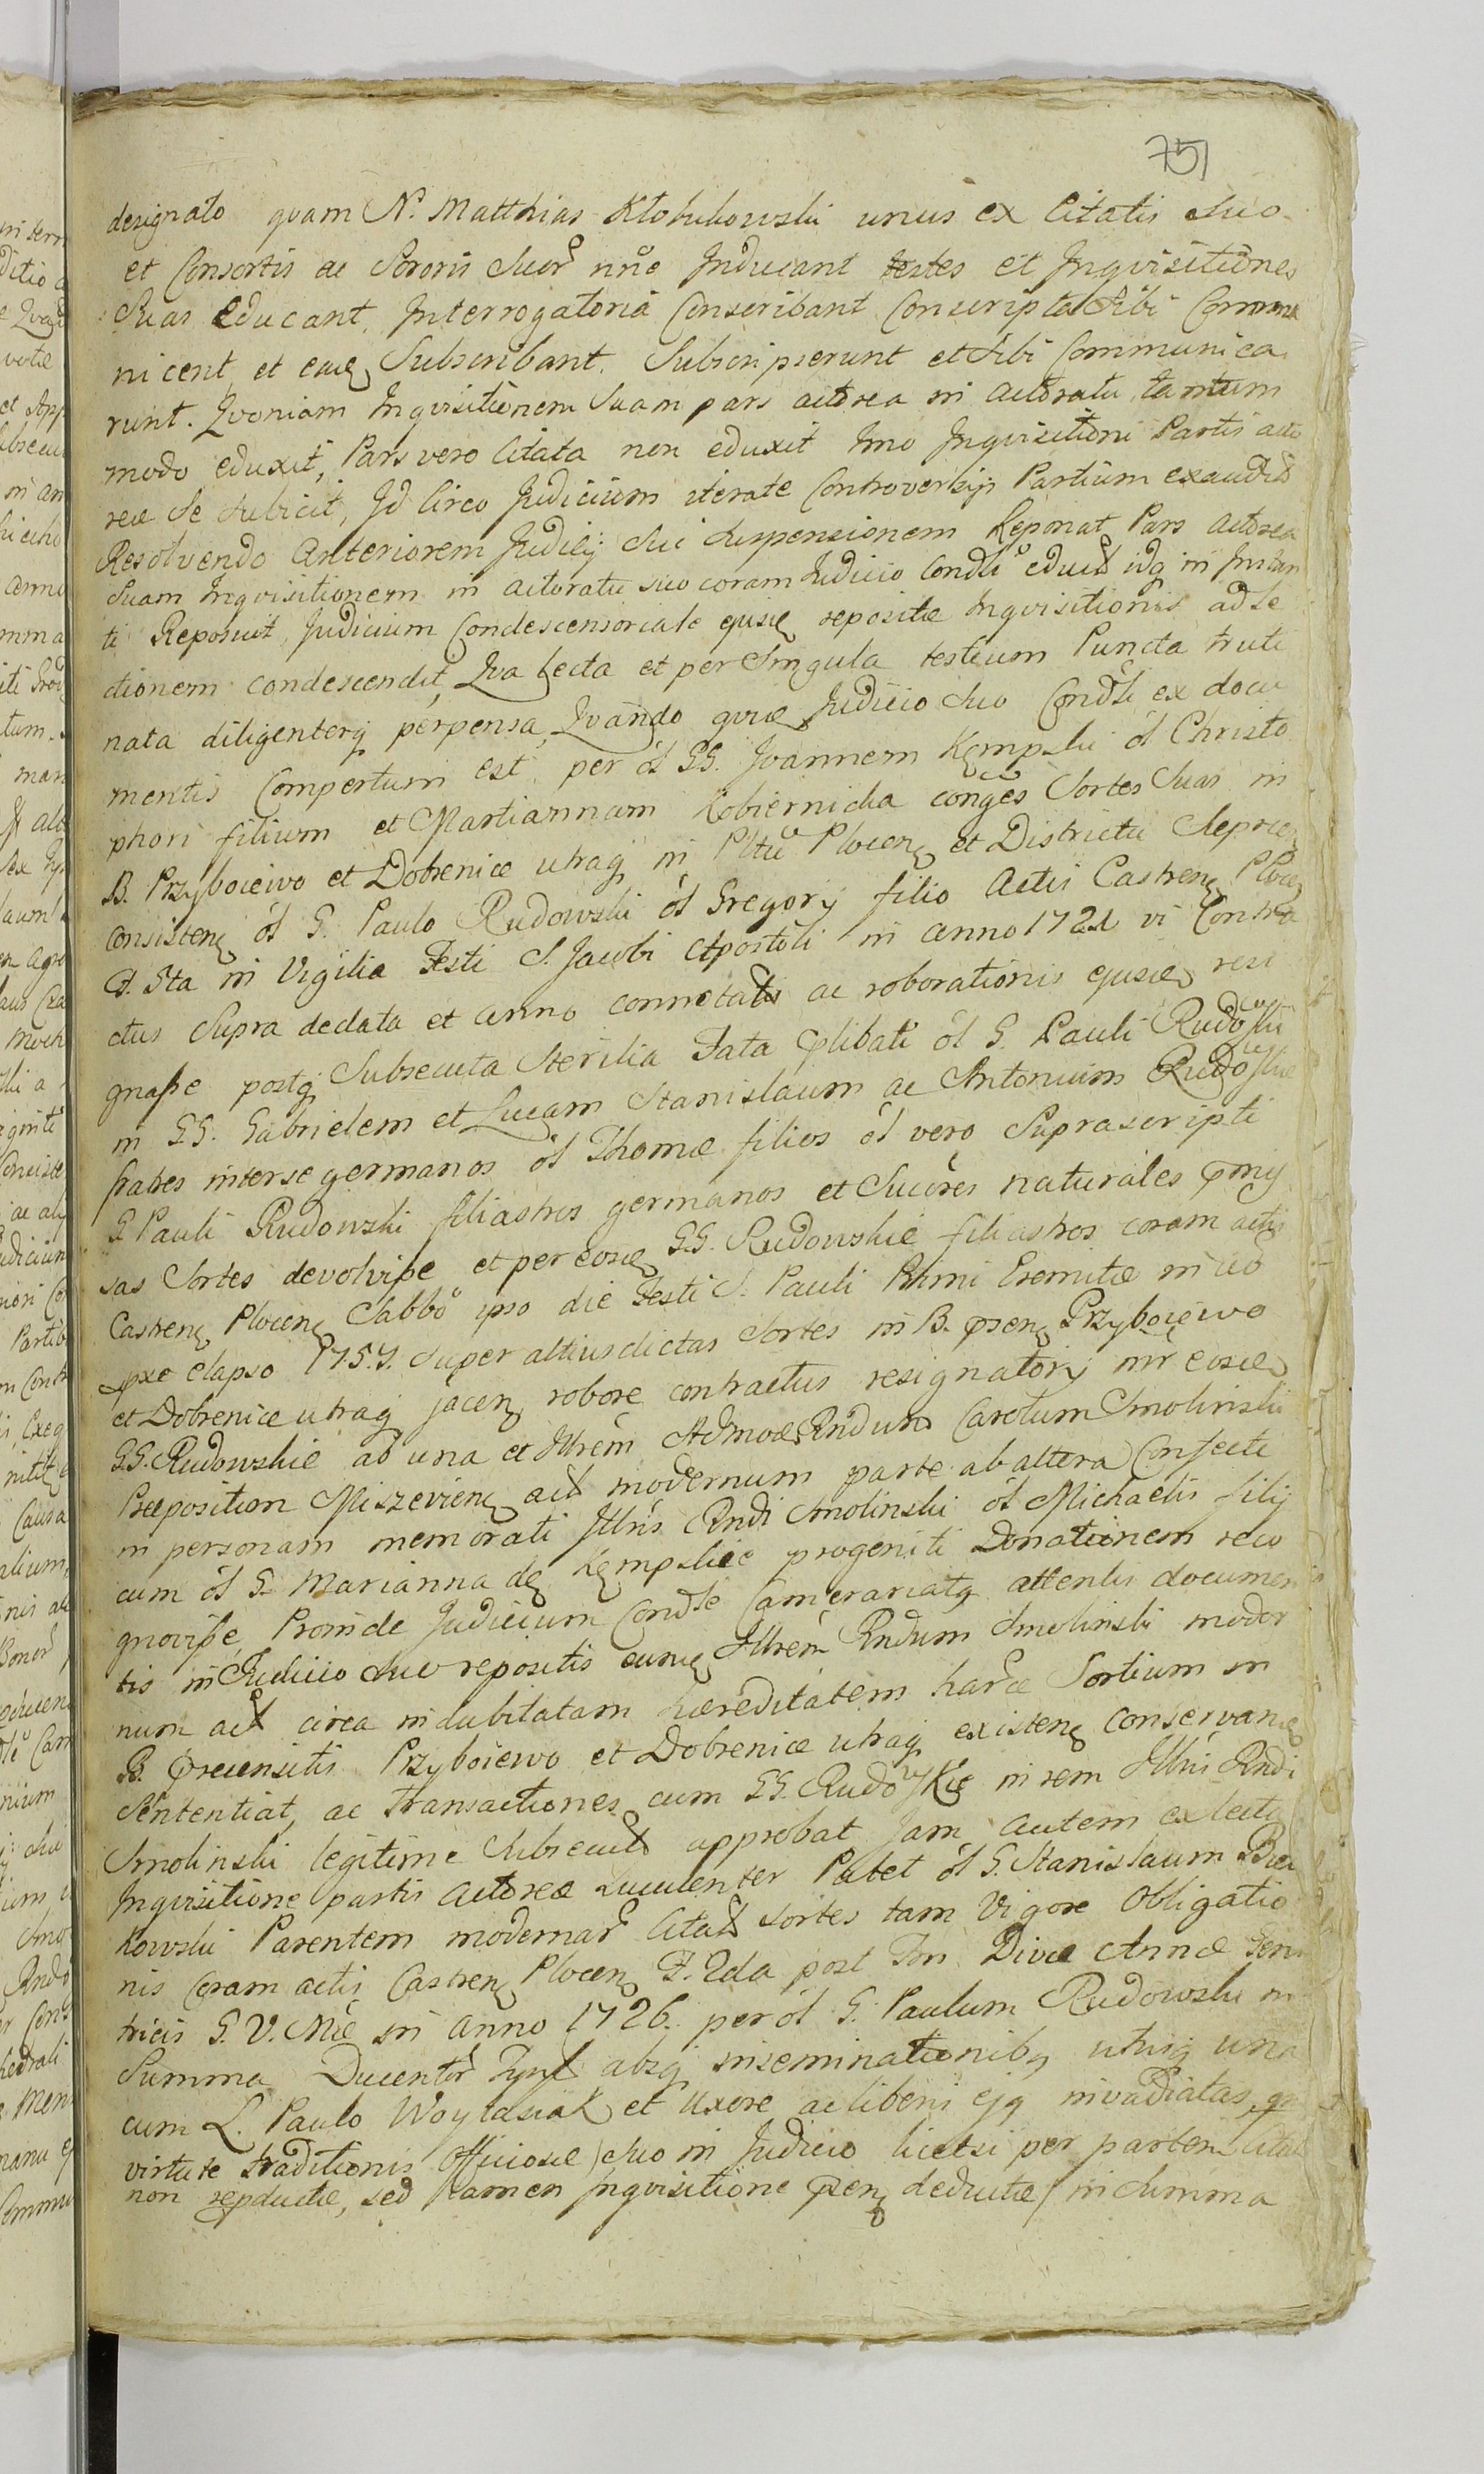 751
designato quam N. Matthias Klobukowski unus ex Citatis suo
et Consortis ac Sororis suor nne Inducant testes et Inqvisitiones
Suas Educant, Interrogatoria Conscribant Conscripta Sibi Commu
nicent, et eaq Subscribant. Subscripserunt et Sibi Communica
runt. Qvoniam Inqvisitionem Suam pars actorea in actoratu tantum
modo eduxit, Pars vero Citata non eduxit Imo Inqvisitioni Partis acto
reæ Se Subicit, Id Circo Judicium iterate Controversijs Partium exaudit
Resolvendo Anteriorem Judicij Sui Suspensionem Reponat Pars Actorea
Suam Inqvisitionem in actoratu suo coram Judicio Condli educt idq in Instan
ti Reposuit, Judicium Condescensoriale ejusq repositæ Inqvisitionis ad le
ctionem condescendit, Qva Lecta et per Singula testium Puncta truti
nata diligenterq perpensa, Qvando qviæ Judicio Suo Condli ex docu
mentis Compertum est, per ol GG. Joannem Kempski ol Christo
phori filium et Mariannam Kobiernicka conges Sortes Suas in
B. Przyboiewo et Dobrenice utraq in Pltu Plocen et Districtu Sieprcen
consisten ol G. Paulo Rudowski ol Gregorij filio Actis Castren Plocen
F. 5ta in Vigilia Festi S. Jacobi Apostoli in anno 1721 vi Contra
ctus Supra de data et anno connotatis ac roborationis ejusq resi
gnasse postq Subsecuta Sterilia Fata plibati ol G. Pauli Rudowski
in GG. Gabrielem et Lucam Stanislaum ac Antonium Rudowskie
fratres interse germanos ol Thomæ filios ol vero Suprascripti
G Pauli Rudowski filiastros germanos et Succres naturales pmis
sas Sortes devolvisse et per eosq GG. Rudowskie filiastros coram actis
Castren Plocen Sabbo ipso die Festi S. Pauli Primi Eremitæ in ao
pxe elapso 1757. Super altius dictas Sortes in B. psen Przyboiewo
et Dobrenice utraq jacen, robore contractus resignatorij inr eosq
GG. Rudowskie ab una et Illrem Admod Rndum Carolum Smolinski
Præpositum Miszevien act modernum parte ab altera Confecti
in personam memorati Illris Rndi Smolinski ol Michaelis filij
cum ol G. Marianna de Kempskie progeniti Donationem reco
gnovisse, Proinde Judicium Condle Camerariatq attentis documen
tis in Judicio Suo repositis eunq Illrem Rndum Smolinski moder
num act circa indubitatam hæreditatem harc Sortium in
B. precensitis Przyboiewo et Dobrenice utraq existen conservan
Sententiat, ac Transactiones cum GG. Rudowskie in rem Illris Rndi
Smolinski legitime Subsecut approbat Jam autem ex lecta
Inqvisitione partis Actoreæ Luculenter Patet ol G. Stanislaum Bier
kowski Parentem modernar Citat Sortes tam Vigore Obligatio
nis Coram actis Castren Plocen F. 2da post Fm Divæ Annæ Geni
tricis G. V. Mæ in anno 1726. per ol G. Paulum Rudowski in
Summa Ducentor Tynf absq inseminationibq utriq una
cum L. Paulo Woytasiak et Uxore ac liberis ejq invadiatas, qm
virtute traditionis Officiosæ Suo in Judicio licetsi per partem Citat
non repductæ, sed tamen Inqvisitione psen deductæ in Summa